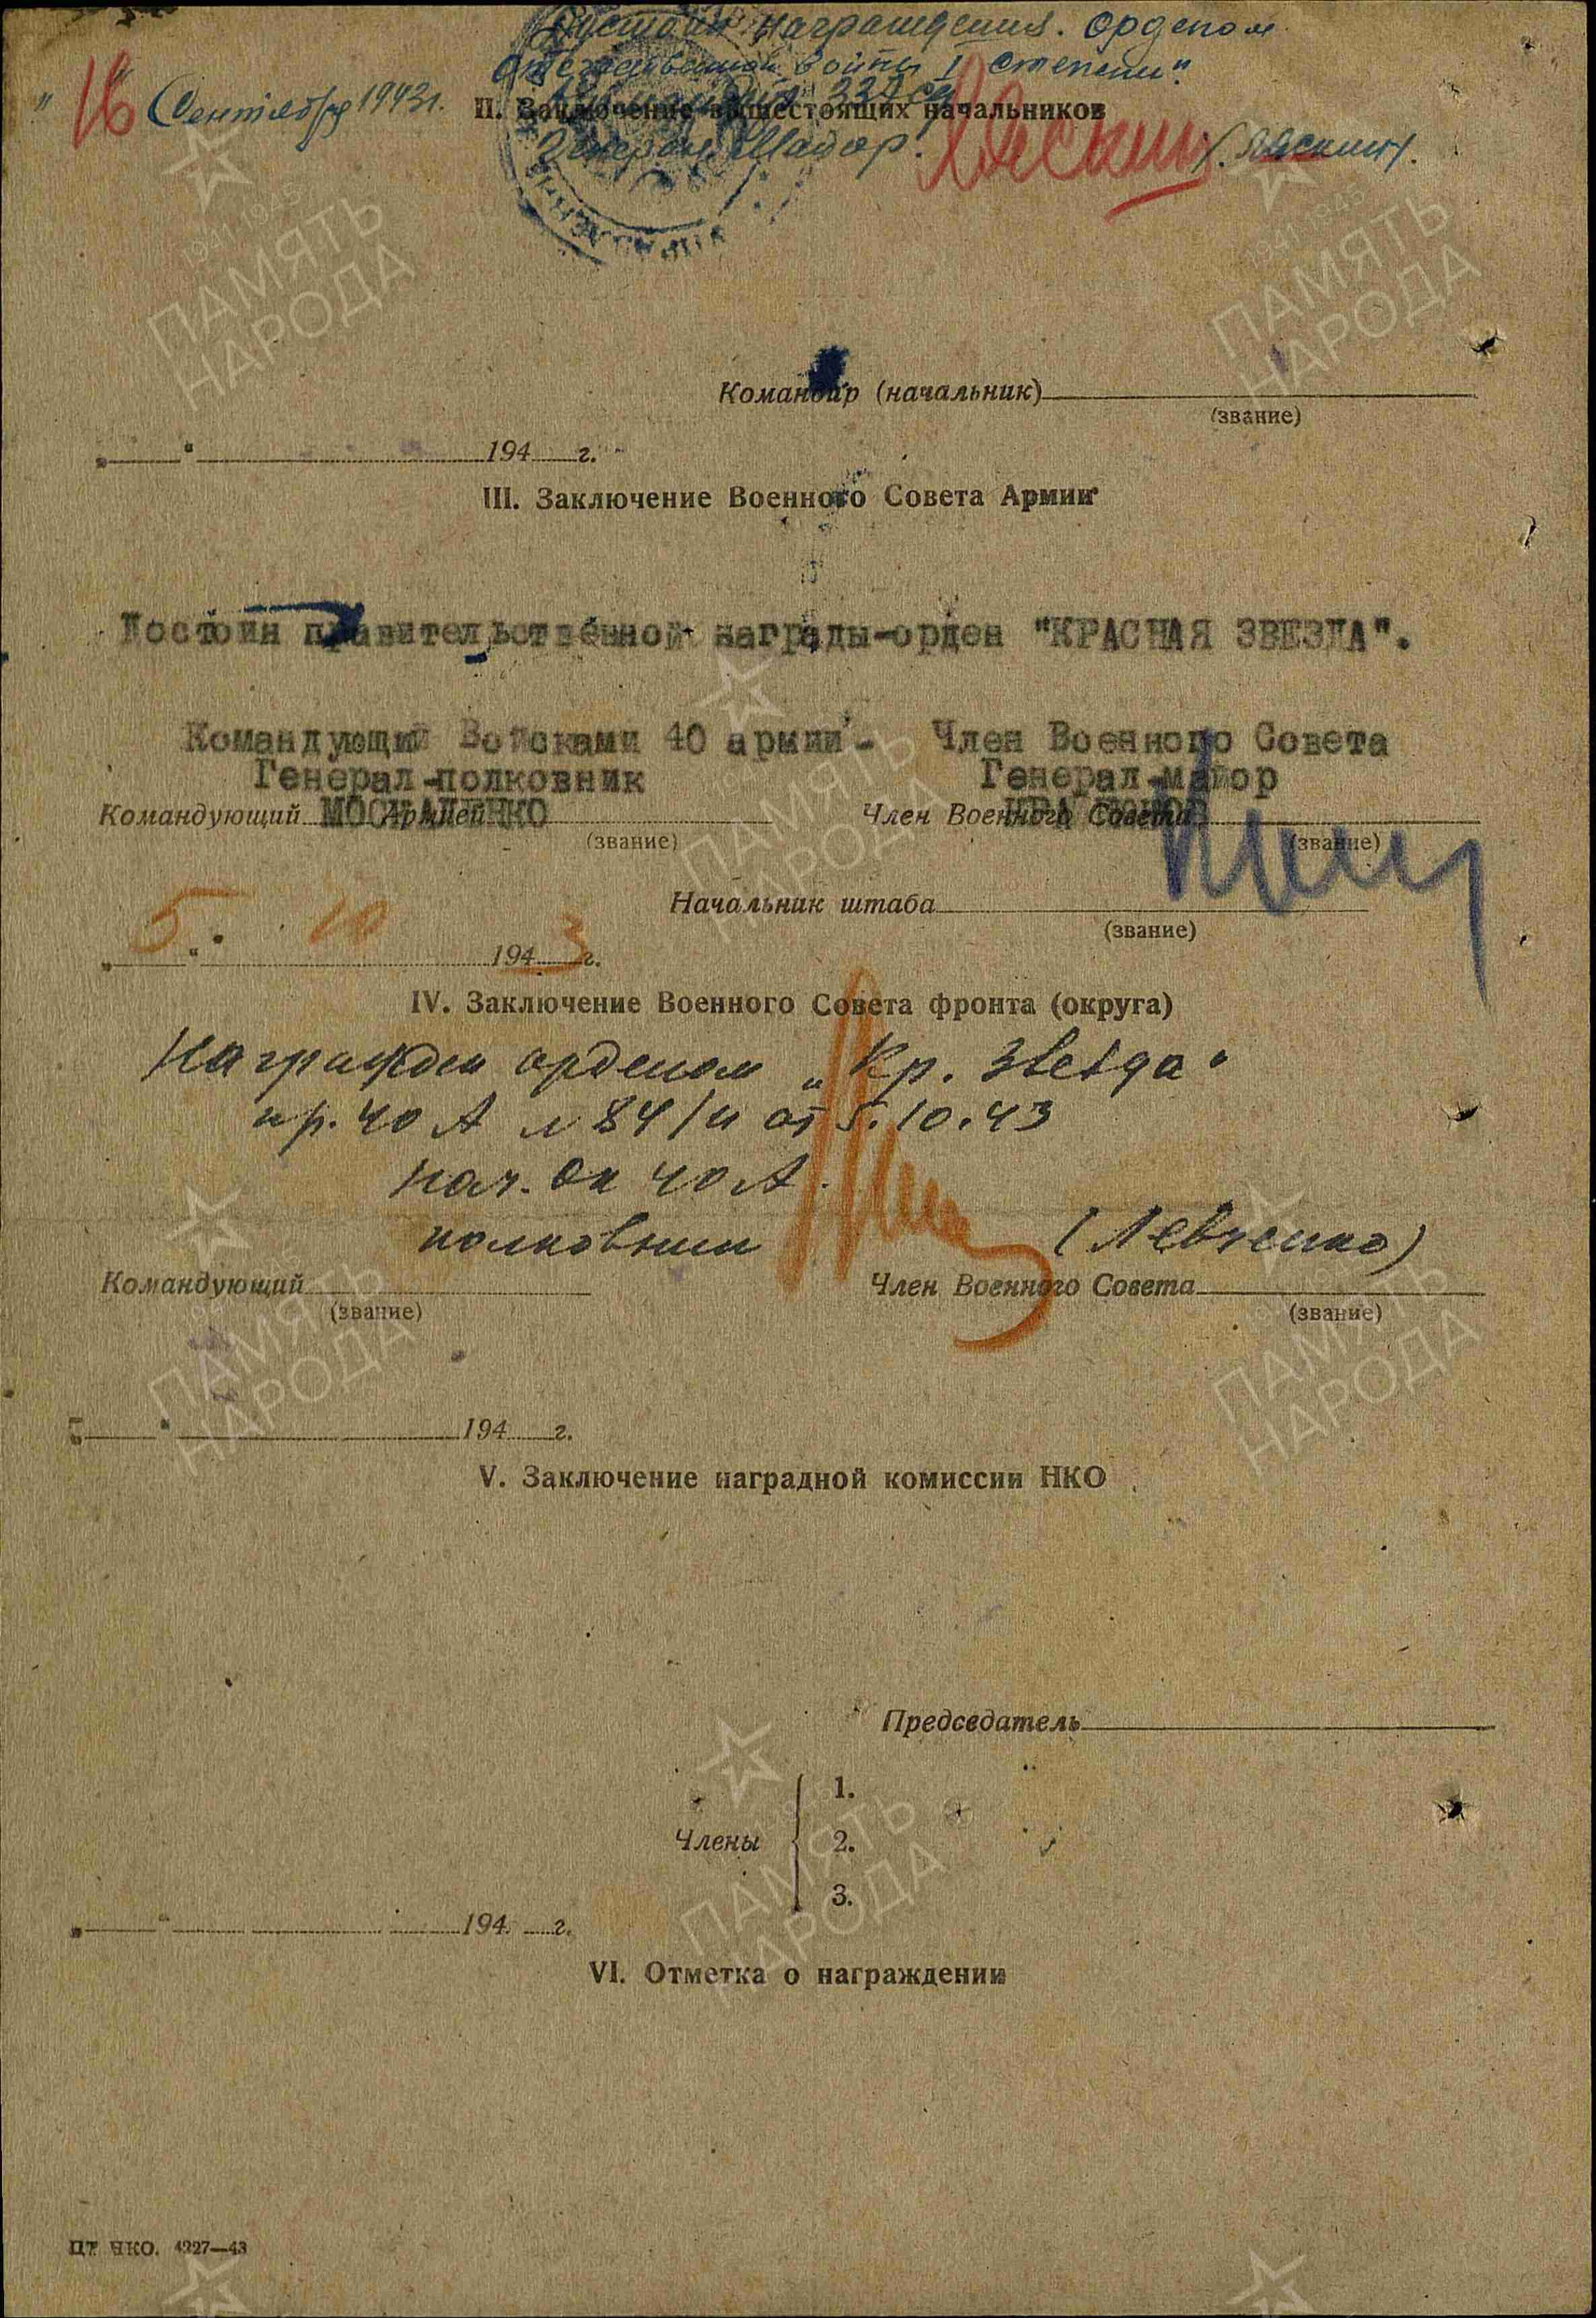 Достоин награждения. Орденом
Отечественной войны I степени".
" 16 " Сентября 1943 г.
II. Заключение вышестоящих начальников
332 сд
Генерал Майор. (Ляскин).
Командир (начальник)
(звание)
„ " 194 г.
III. Заключение Военного Совета Армии
Достоин правительственной награды-орден "КРАСНАЯ ЗВЕЗДА".
Командующий Войсками 40 армии - Член Военного Совета
Генерал-полковник Генерал-майор
МОСКАЛЕНКО
Командующий Армией Член Военного Совета
(звание) (звание)
Начальник штаба
(звание)
„ 5 " 10 1943 г.
IV. Заключение Военного Совета фронта (округа)
Награжден орденом „Кр. Звезда"
пр. 40 А № 84/н от 5.10.43
Нач. ОК 40 А.
полковник (Левченко)
Командующий Член Военного Совета
(звание) (звание)
„ " 194 г.
V. Заключение наградной комиссии НКО
Председатель
1.
Члены 2.
3.
„ " 194 г.
VI. Отметка о награждении
ЦТ НКО. 4227—43
1941 1945
ПАМЯТЬ
НАРОДА